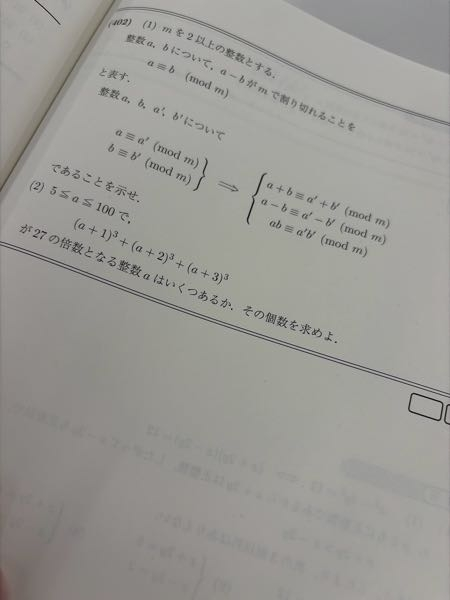 (402) (1) m を 2 以上の整数とする.
整数 a, b について, a − b が m で割り切れることを
a ≡ b (mod m)
と表す.
整数 a, b, a′, b′ について
a ≡ a′ (mod m)
b ≡ b′ (mod m)
} ⟹ {
a + b ≡ a′ + b′ (mod m)
a − b ≡ a′ − b′ (mod m)
ab ≡ a′b′ (mod m)
であることを示せ.
(2) 5 ≦ a ≦ 100 で,
(a + 1)³ + (a + 2)³ + (a + 3)³
が 27 の倍数となる整数 a はいくつあるか. その個数を求めよ.